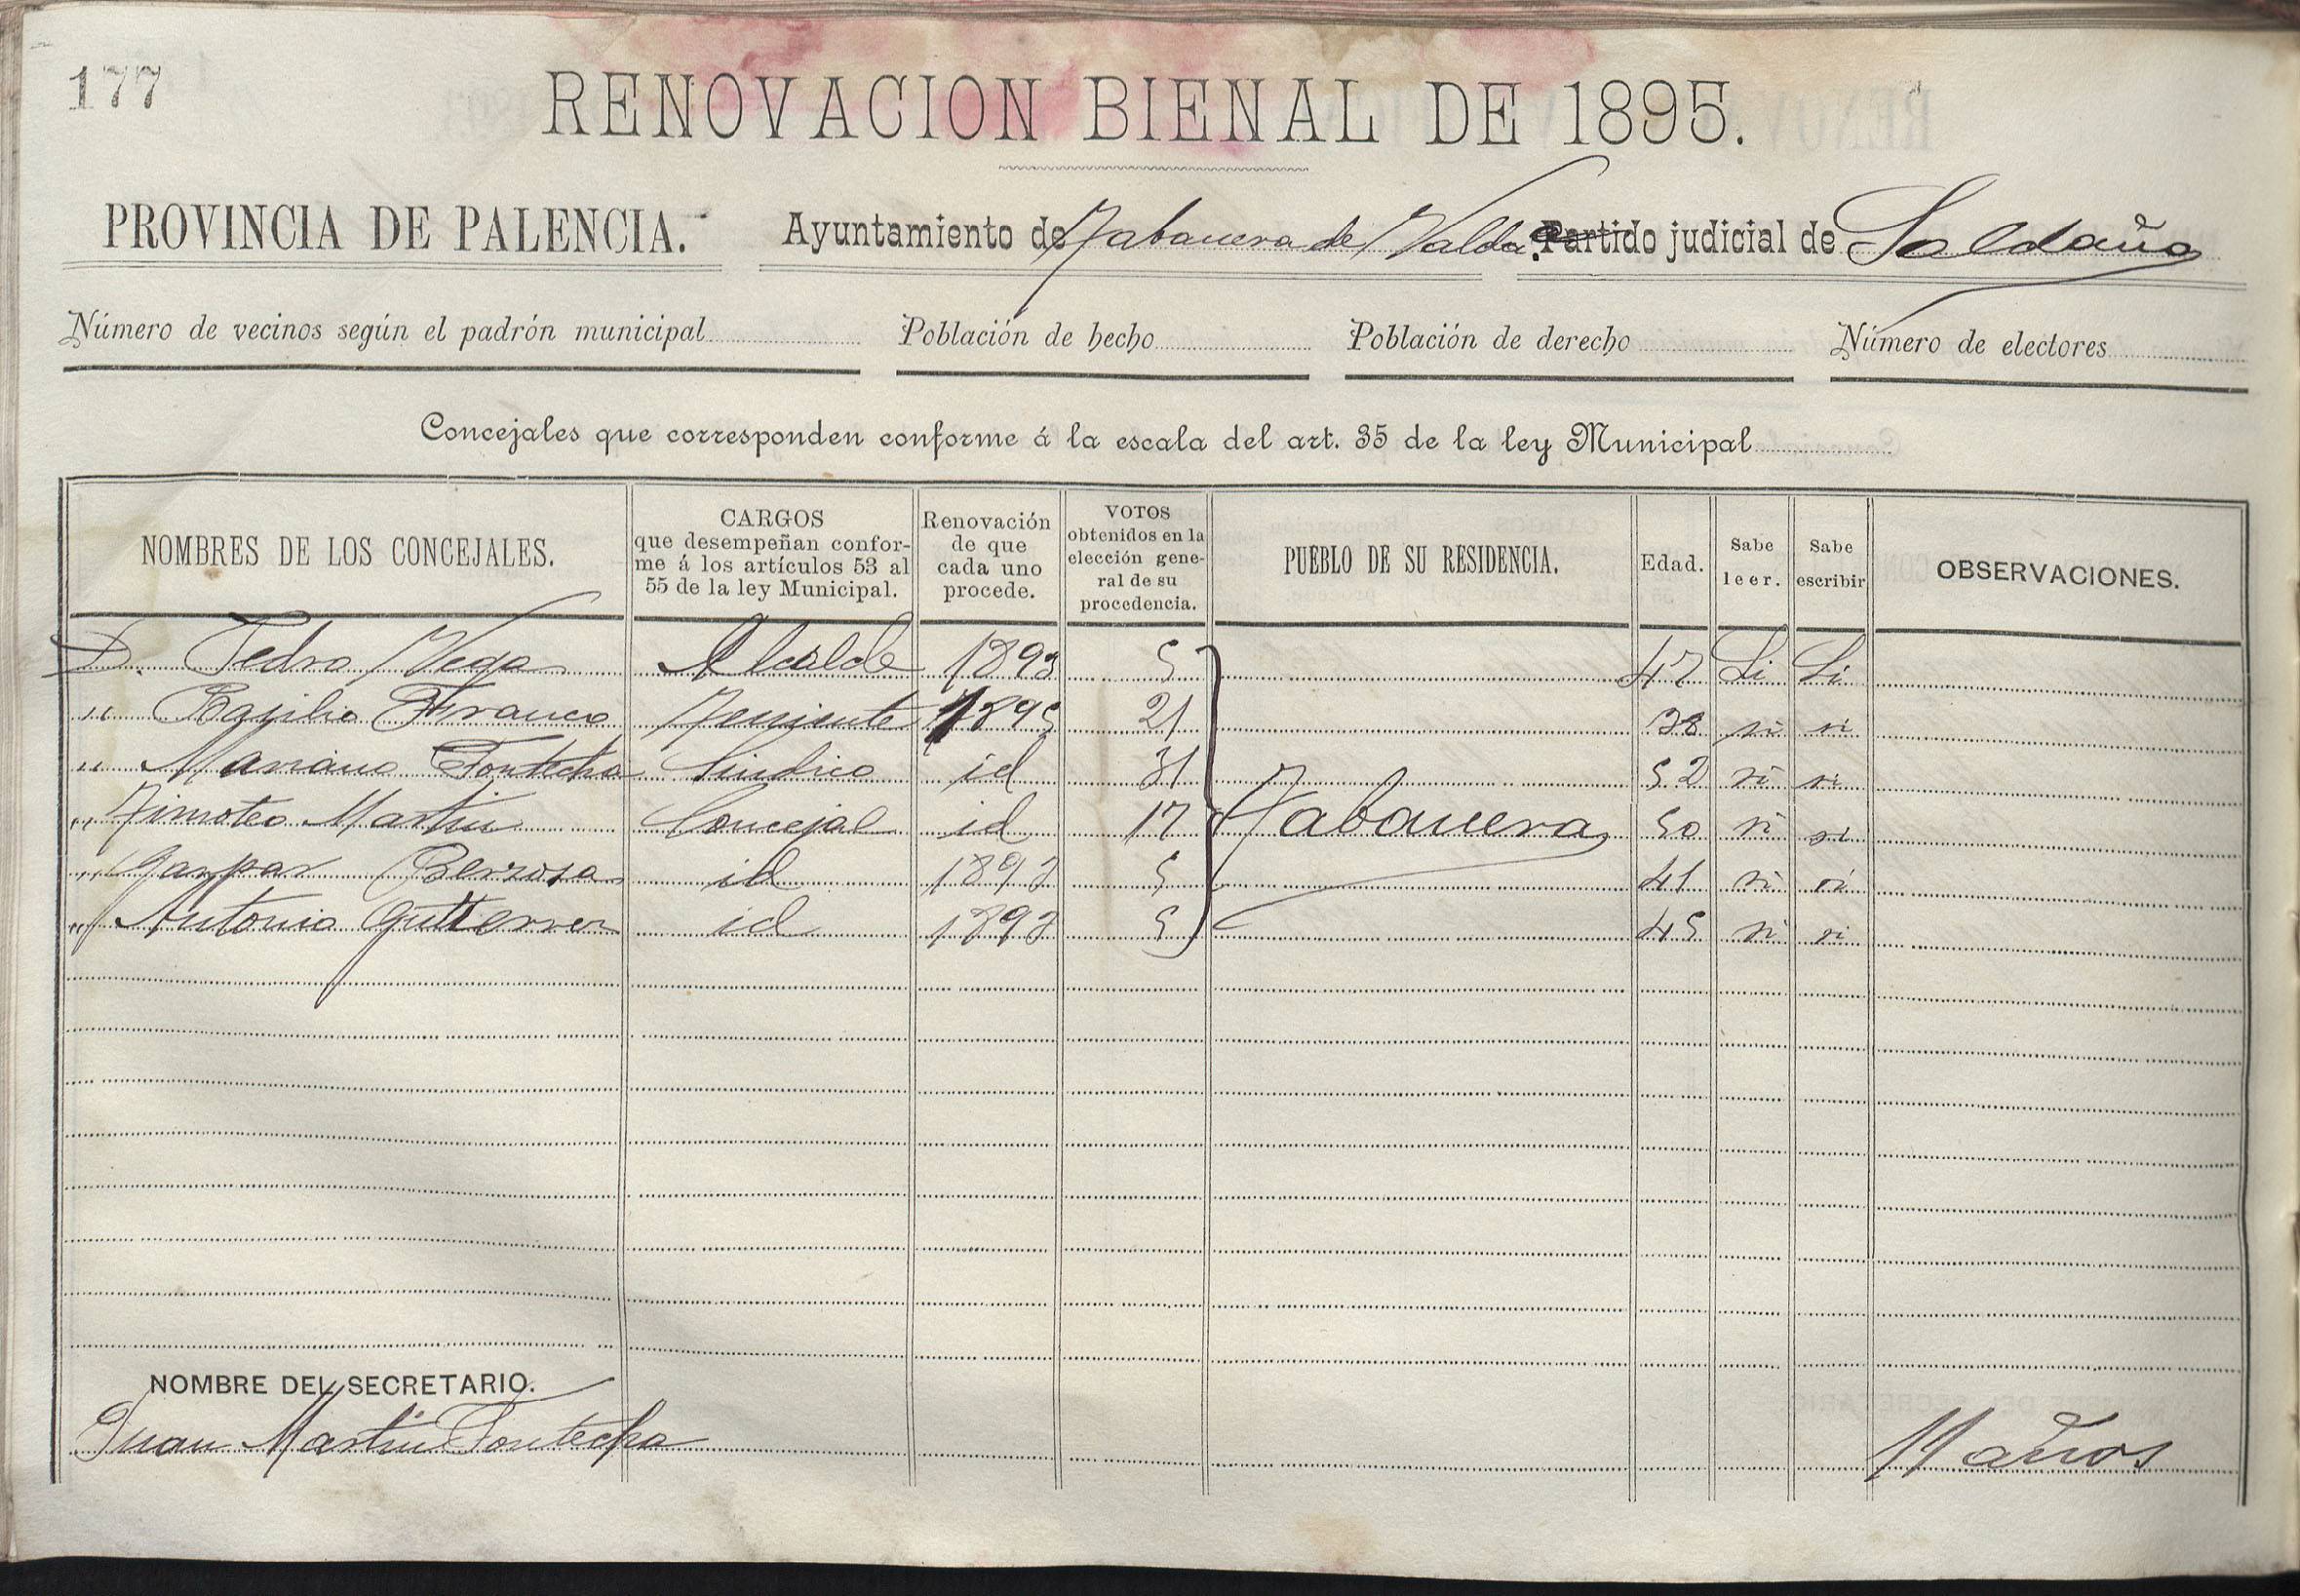 177
RENOVACION BIENAL DE 1895.
PROVINCIA DE PALENCIA. Ayuntamiento de Tabanera de Valda. Partido judicial de Saldaña
Número de vecinos según el padrón municipal Población de hecho Población de derecho Número de electores
Concejales que corresponden conforme á la escala del art. 35 de la ley Municipal
NOMBRES DE LOS CONCEJALES. CARGOS que desempeñan conforme á los artículos 53 al 55 de la ley Municipal. Renovación de que cada uno procede. VOTOS obtenidos en la elección general de su procedencia. PUEBLO DE SU RESIDENCIA. Edad. Sabe leer. Sabe escribir OBSERVACIONES.
D. Pedro Vega Alcalde 1893 5 47 Si Si
" Basilio Franco Teniente 1895 21 38 si si
" Mariano Fontecha Sindico id 31 52 si si
" Timoteo Martin Concejal id 17 Tabanera 50 si si
" Gaspar Berzosa id 1893 5 41 si si
" Antonio Gutierrez id 1893 5 45 si si
NOMBRE DEL SECRETARIO.
Juan Martin Fontecha 11 años